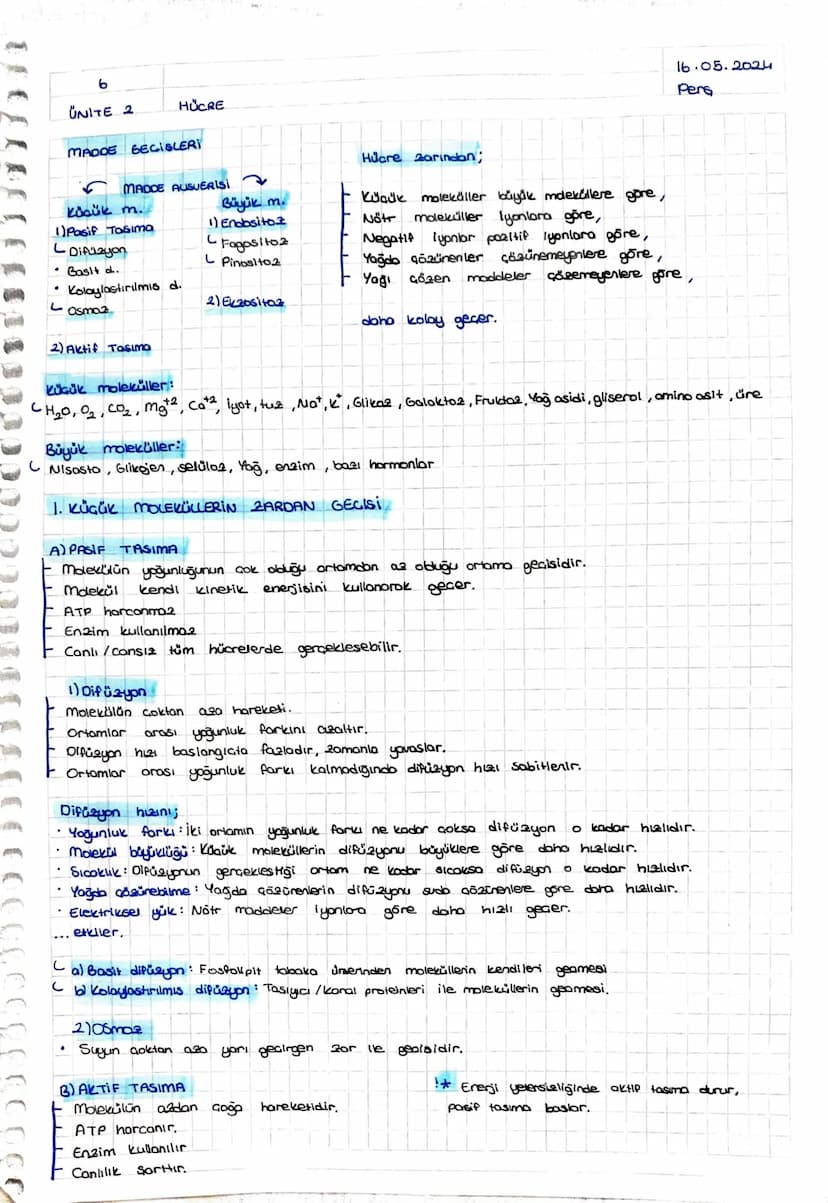 6
16.05.2024
Perş
ÜNİTE 2 HÜCRE
MADDE GEÇİŞLERİ
MADDE ALIŞVERİŞİ
Küçük m.
1) Pasif Taşıma
Difüzyon
• Basit d.
• Kolaylaştırılmış d.
Osmoz
2) Aktif Taşıma
Büyük m.
1) Endositoz
Fagositoz
Pinositoz
2) Ekzositoz
Hücre zarından;
Küçük moleküller büyük moleküllere göre,
Nötr moleküller iyonlara göre,
Negatif iyonlar pozitif iyonlara göre,
Yağda çözünenler çözünemeyenlere göre,
Yağı çözen maddeler çözemeyenlere göre,
daha kolay geçer.
Küçük moleküller:
H₂O, O₂, CO₂, Mg⁺², Ca⁺², İyot, tuz, Na⁺, K⁺, Glikoz, Galaktoz, Fruktoz, Yağ asidi, gliserol, amino asit, üre
Büyük moleküller:
Nişasta, Glikojen, selüloz, Yağ, enzim, bazı hormonlar
1. KÜÇÜK MOLEKÜLLERİN ZARDAN GEÇİŞİ
A) PASİF TAŞIMA
Molekülün yoğunluğunun çok olduğu ortamdan az olduğu ortama geçişidir.
Molekül kendi kinetik enerjisini kullanarak geçer.
ATP harcanmaz
Enzim kullanılmaz
Canlı/cansız tüm hücrelerde gerçekleşebilir.
1) Difüzyon
Molekülün çoktan aza hareketi.
Ortamlar arası yoğunluk farkını azaltır.
Difüzyon hızı başlangıçta fazladır, zamanla yavaşlar.
Ortamlar arası yoğunluk farkı kalmadığında difüzyon hızı sabitlenir.
Difüzyon hızını;
• Yoğunluk farkı: İki ortamın yoğunluk farkı ne kadar çoksa difüzyon o kadar hızlıdır.
• Molekül büyüklüğü: Küçük moleküllerin difüzyonu büyüklere göre daha hızlıdır.
• Sıcaklık: Difüzyonun gerçekleştiği ortam ne kadar sıcaksa difüzyon o kadar hızlıdır.
• Yağda çözünebilme: Yağda çözünenlerin difüzyonu suda çözünenlere göre daha hızlıdır.
• Elektriksel yük: Nötr maddeler iyonlara göre daha hızlı geçer.
... etkiler.
a) Basit difüzyon: Fosfolipit tabaka üzerinden moleküllerin kendileri geçmesi
b) Kolaylaştırılmış difüzyon: Taşıyıcı/kanal proteinleri ile moleküllerin geçmesi.
2) Osmoz
• Suyun çoktan aza yarı geçirgen zar ile geçişidir.
B) AKTİF TAŞIMA
Molekülün azdan çoğa hareketidir.
ATP harcanır.
Enzim kullanılır
Canlılık şarttır.
!* Enerji yetersizliğinde aktif taşıma durur,
pasif taşıma başlar.